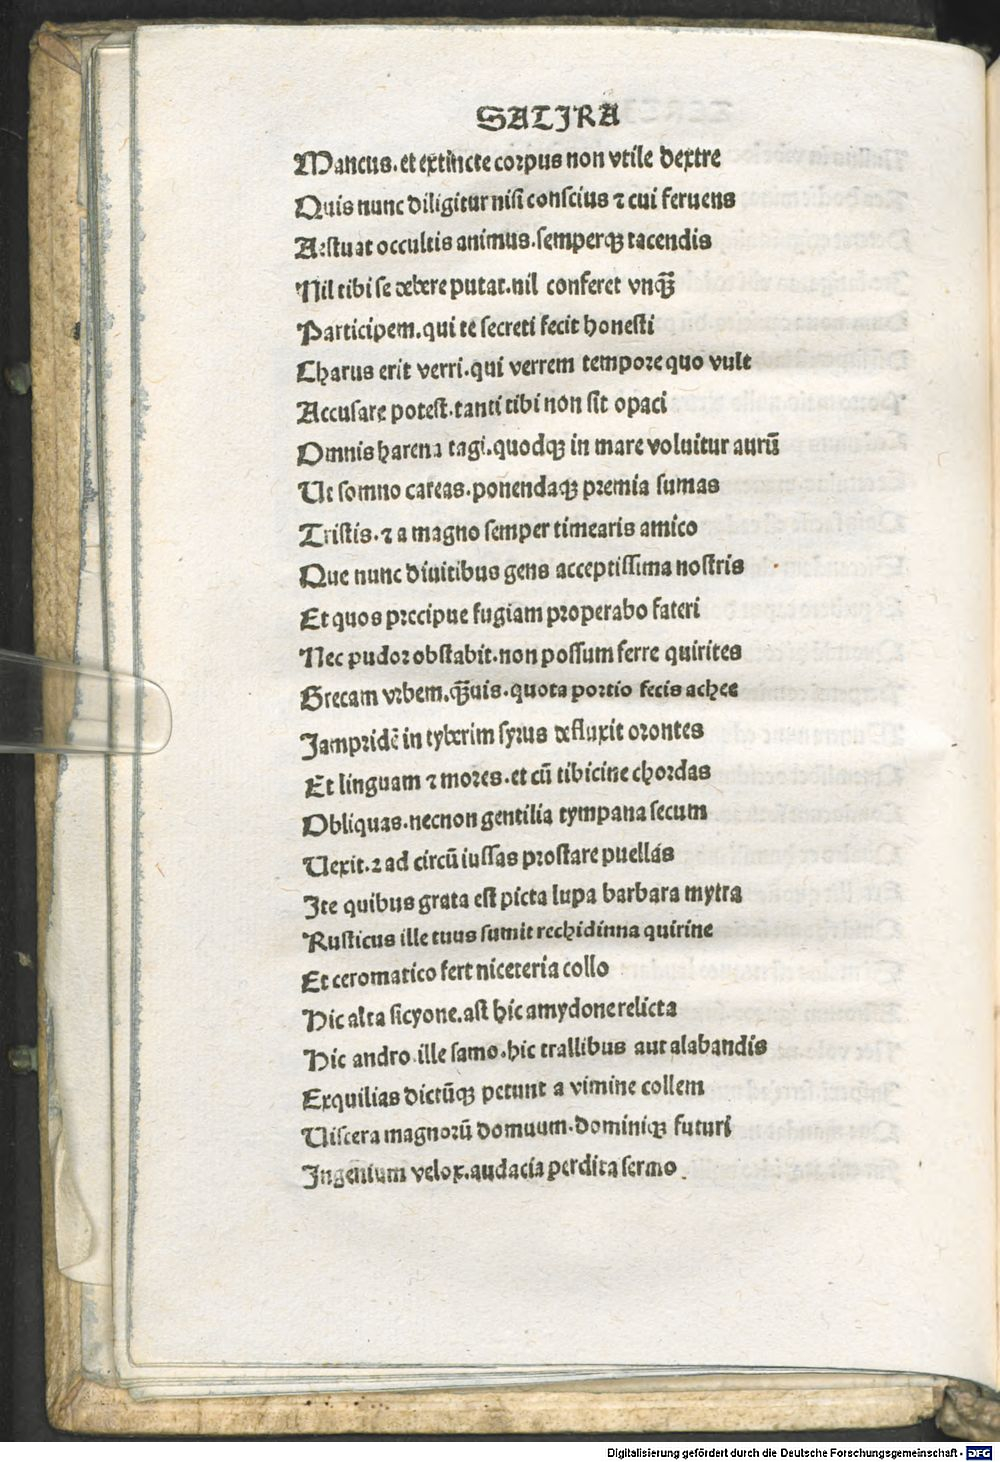 SATIRA
Mancus. et extincte corpus non vtile dextre
Quis nunc diligitur nisi conscius ⁊ cui feruens
Aestuat occultis animus. semperqꝫ tacendis
Nil tibi se debere putat. nil conferet vnqꝫ̃
Participem. qui te secreti fecit honesti
Charus erit verri. qui verrem tempore quo vult
Accusare potest. tanti tibi non sit opaci
Omnis harena tagi. quodqꝫ in mare voluitur aurū
Ut somno careas. ponendaqꝫ premia sumas
Tristis. ⁊ a magno semper timearis amico
Que nunc diuitibus gens acceptissima nostris
Et quos precipue fugiam properabo fateri
Nec pudor obstabit. non possum ferre quirites
Grecam vrbem. qꝫ̃uis. quota portio fecis achee
Jampridē in tyberim syrus defluxit orontes
Et linguam ⁊ mores. et cū tibicine chordas
Obliquas. necnon gentilia tympana secum
Uexit. ⁊ ad circū iussas prostare puellas
Ite quibus grata est picta lupa barbara mytra
Rusticus ille tuus sumit rechidinna quirine
Et ceromatico fert niceteria collo
Hic alta sicyone. ast hic amydone relicta
Hic andro. ille samo. hic trallibus aut alabandis
Exquilias dictūqꝫ petunt a vimine collem
Uiscera magnorū domuum. dominiqꝫ futuri
Ingenium velox. audacia perdita sermo.
Digitalisierung gefördert durch die Deutsche Forschungsgemeinschaft - DFG